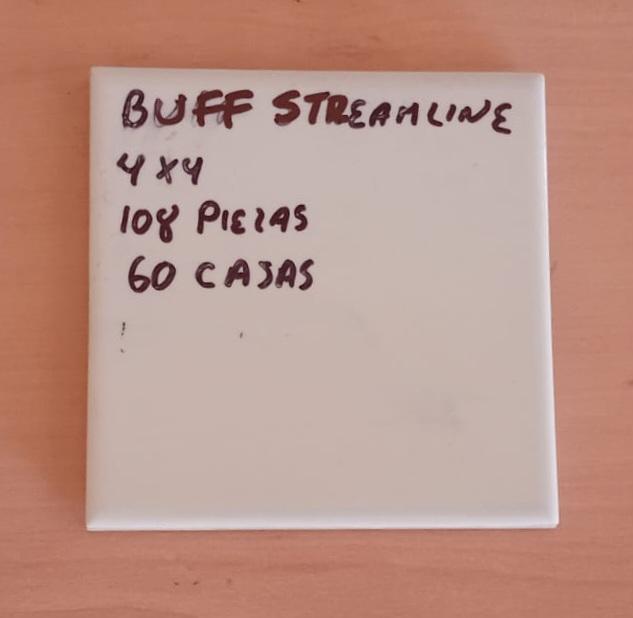 BUFF STREAMLINE
4X4
108 PIEZAS
60 CAJAS